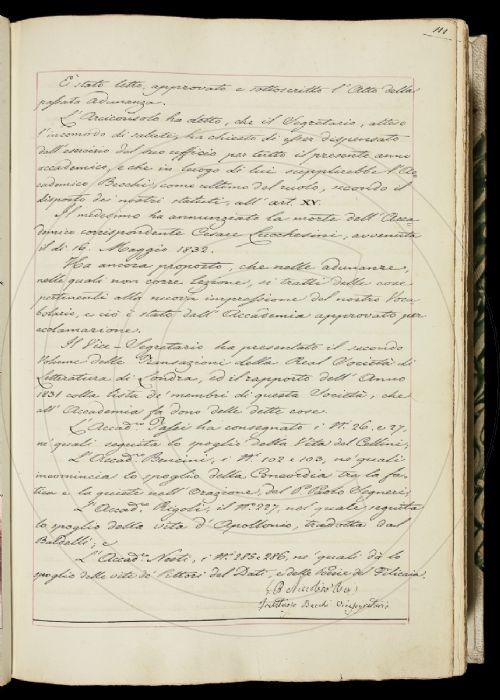 111
È stato letto, approvato e sottoscritto l'Atto della
passata Adunanza.
L'Arciconsolo ha detto, che il Segretario, atteso
l'incomodo di salute, ha chiesto di esser dispensato
dall'esercizio del suo ufficio per tutto il presente anno
accademico, e che in luogo di lui supplirebbe l'Ac-
cademico Becchi, come ultimo del ruolo, secondo il
disposto de' nostri statuti, all'art. XV.
Il medesimo ha annunziato la morte dell'Acca-
demico corrispondente Cesare Lucchesini, avvenuta
il dì 16. Maggio 1832.
Ha ancora proposto, che nelle adunanze,
nelle quali non corre lezione, si tratti delle cose
pertinenti alla nuova impressione del nostro Voca-
bolario, e ciò è stato dall'Accademia approvato per
acclamazione.
Il Vice-Segretario ha presentato il secondo
Volume delle Transazioni della Real Società di
Letteratura di Londra, ed il rapporto dell'Anno
1831 colla lista de' membri di questa Società, che
all'Accademia fa dono delle dette cose.
L'Accad.co ha consegnato i N.i 26, e 27,
ne' quali seguita lo spoglio della Vita del Cellini;
L'Accad.co Bencini, i N.i 102 e 103, ne' quali
incomincia lo spoglio della Concordia tra la fa-
tica e la quiete nell'Orazione, del P. Paolo Segneri;
L'Accad.co Rigoli, il N.o 227, nel quale seguita
lo spoglio della vita d'Apollonio, tradotta dal
Baldelli; e
L'Accad.co Nesti, i N.i 285 e 286, ne' quali dà lo
spoglio delle vite de' Pittori del Dati, e delle Poesie del Filicaia.
Fruttuoso Becchi Vicesegretario